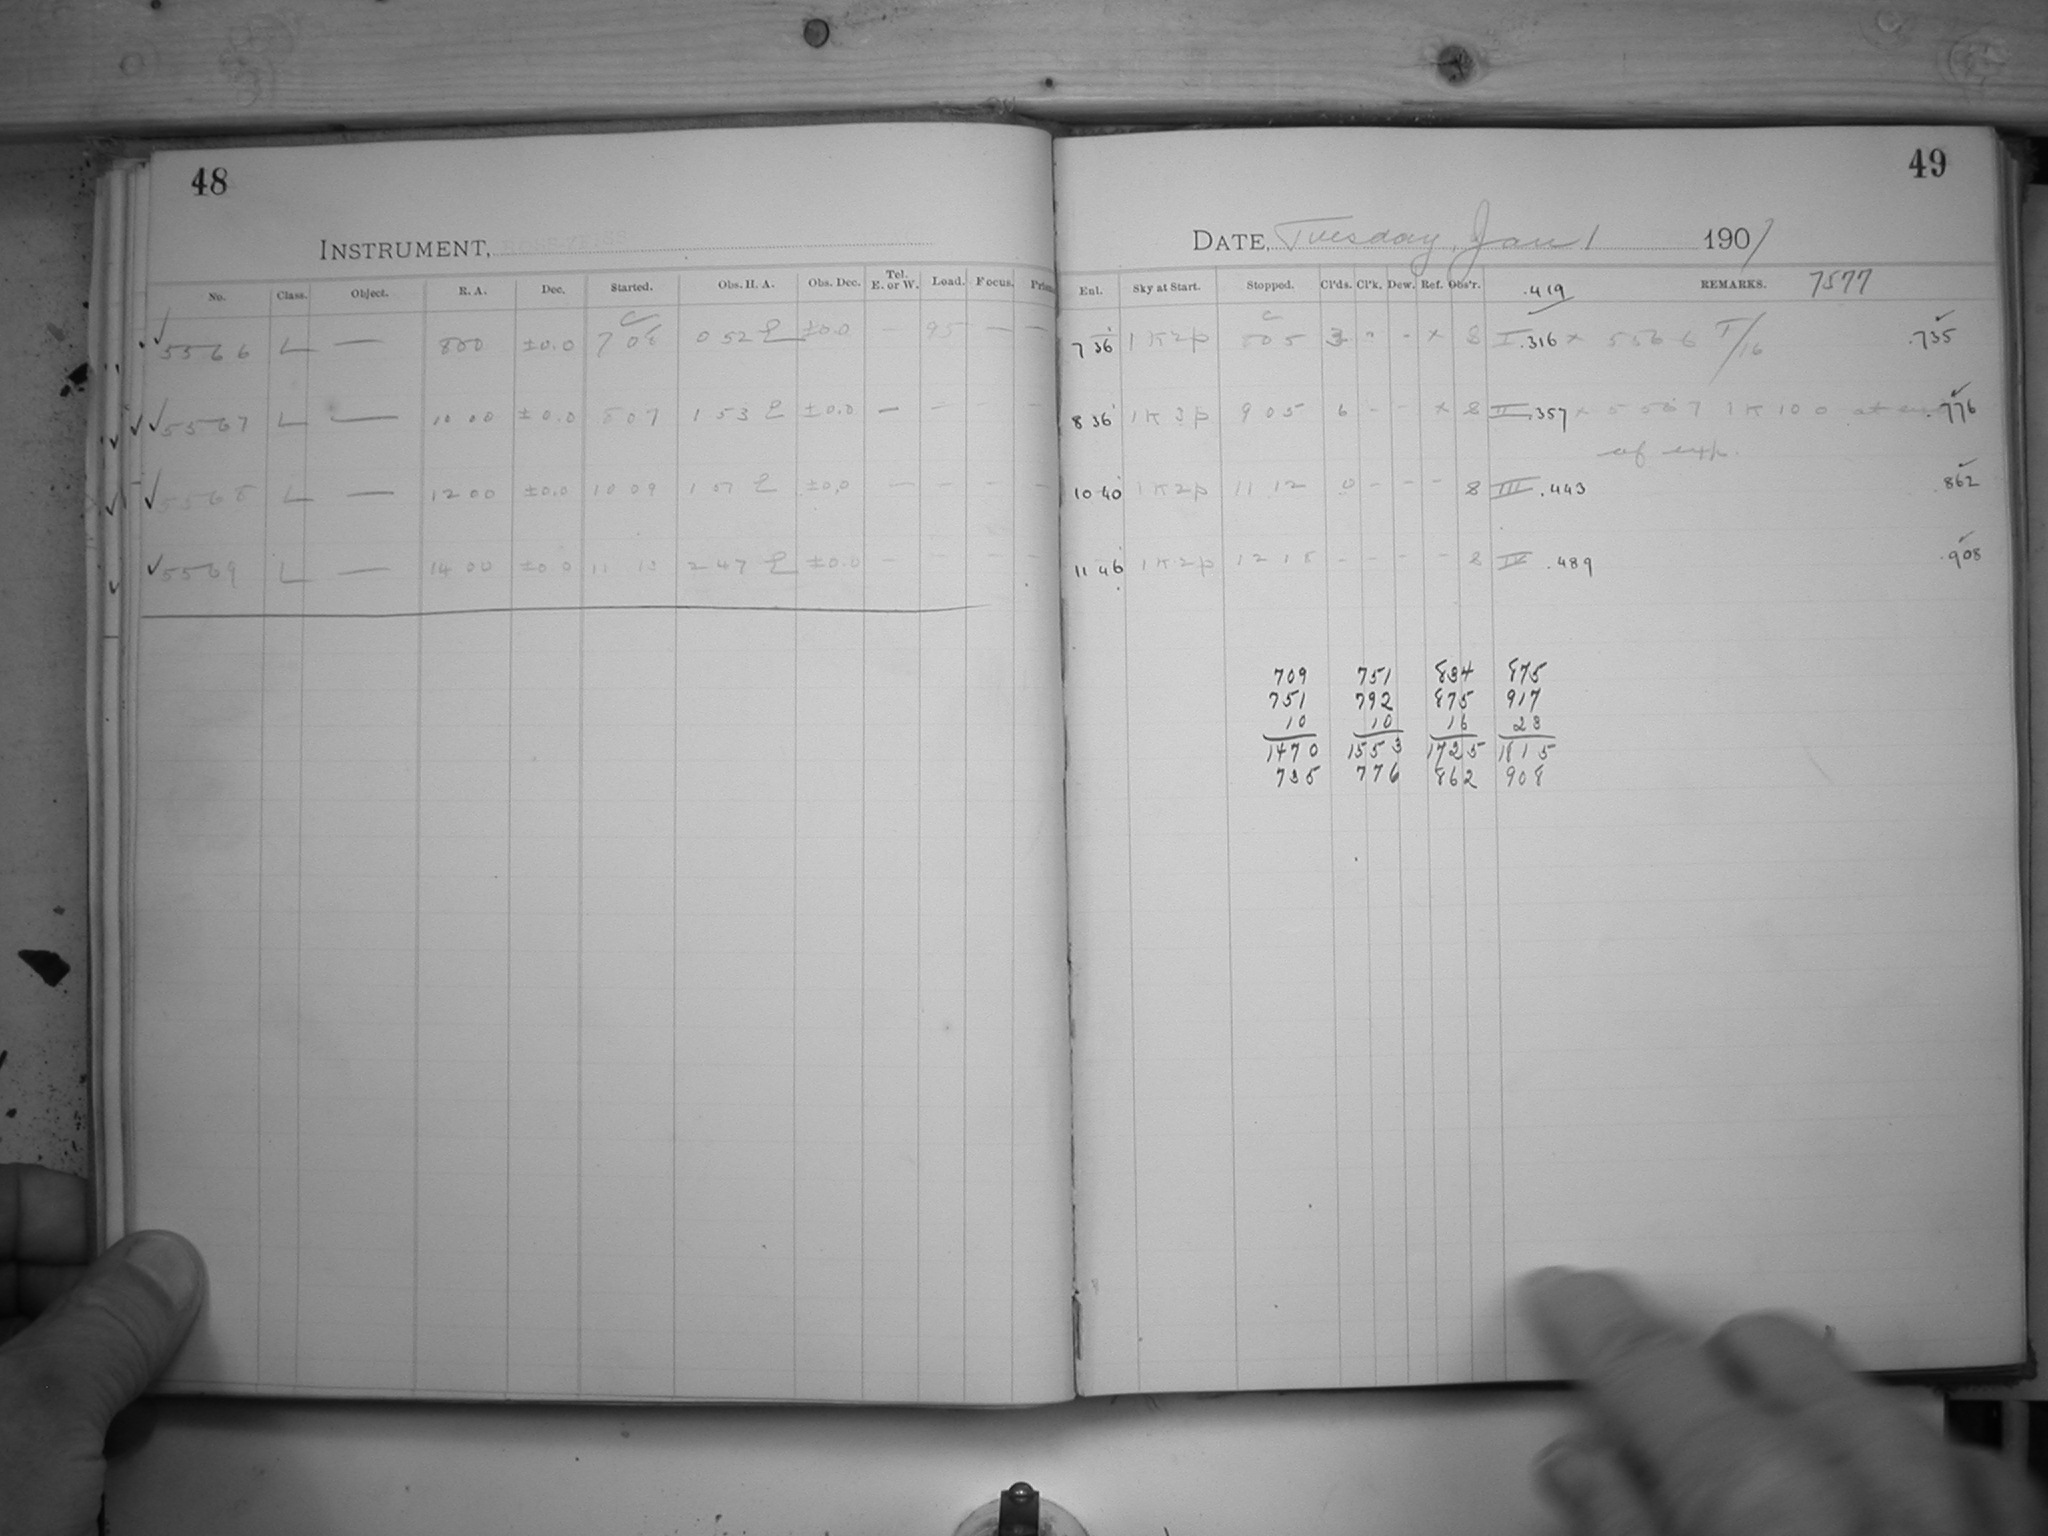 48
INSTRUMENT,
No. Class. Object. R. A. Dec. Started. Obs. H. A. Obs. Dec. Tel. E. or W. Load. Focus. Prism
5566 L — 800 ±0.0 7 08 0 52 E ±0.0 — 95 — —
5567 L — 10 00 ±0.0 8 07 1 53 E ±0.0 — — — —
5568 L — 12 00 ±0.0 10 09 1 07 E ±0.0 — — — —
5569 L — 14 00 ±0.0 11 13 2 47 E ±0.0 — — — —
49
DATE, Tuesday, Jan 1 1907
Enl. Sky at Start. Stopped. Cl'ds. Cl'k. Dew. Ref. Obs'r. .419 REMARKS. 7577
7 36 1 K 2 p 80 5 3 - - x 8 I .316 x 5566 I/16 .735
8 36 1 K 3 p 9 05 6 - - x 8 II .357 x 5567 1 K 10 0 at .776
of exp.
10 40 1 K 2 p 11 12 0 - - - 8 III .443 .862
11 46 1 K 2 p 12 18 - - - - 8 IV .489 .908
709 751 834 875
751 792 875 917
10 10 16 23
1470 1553 1725 1815
735 776 862 908